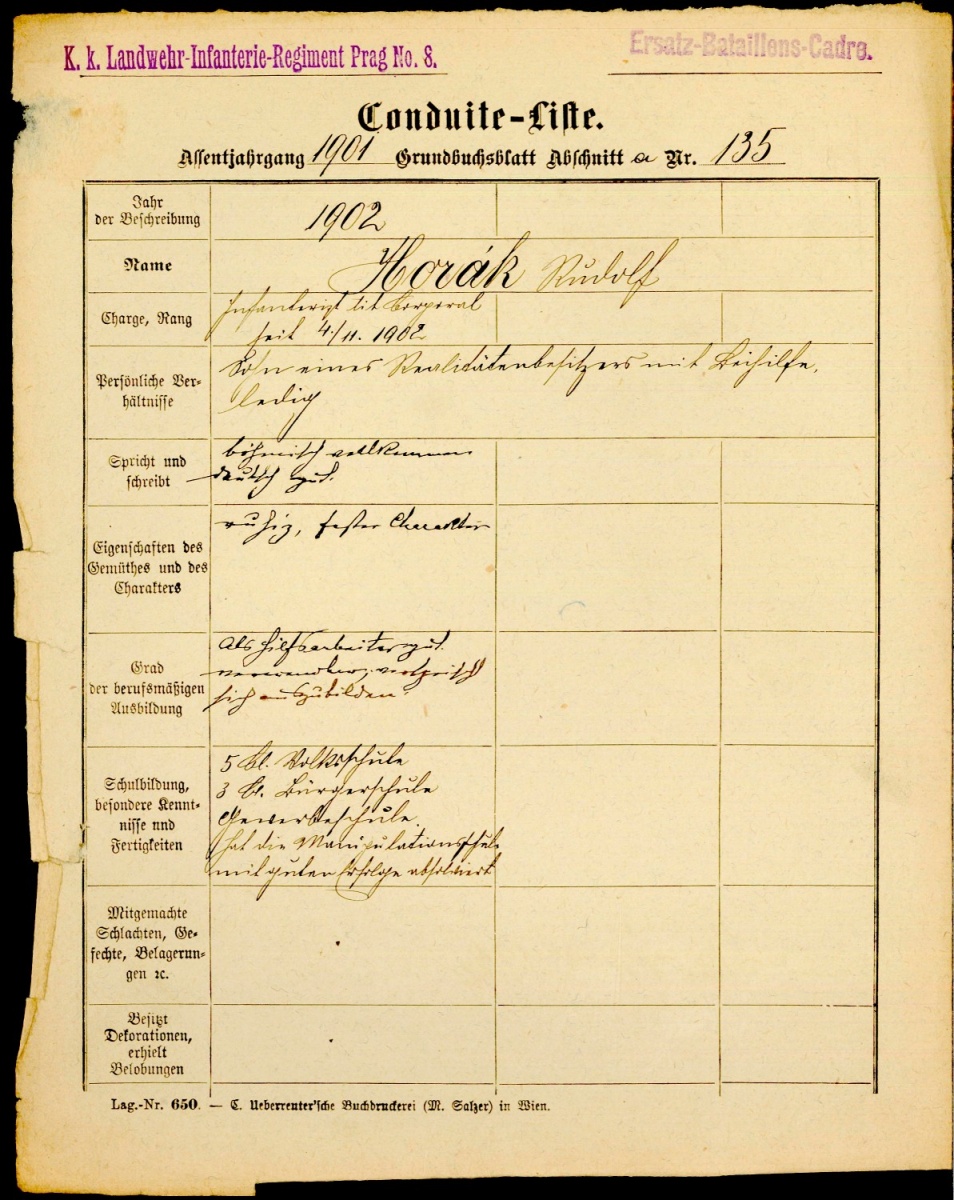 K. k. Landwehr-Infanterie-Regiment Prag No. 8.
Ersatz-Bataillons-Cadre.
Conduite-Liste.
Assentjahrgang 1901 Grundbuchsblatt Abschnitt a Nr. 135
Jahr
der Beschreibung
1902
Name
Horák Rudolf
Charge, Rang
Infanterist tit Corporal
seit 4./11. 1902
Persönliche Ver-
hältnisse
Sohn eines Realitätenbesitzers mit Beihilfe,
ledig
Spricht und
schreibt
böhmisch vollkommen
deutsch gut.
Eigenschaften des
Gemüthes und des
Charakters
ruhig, fester Charakter
Grad
der berufsmäßigen
Ausbildung
als Hilfsarbeiter gut
verwendbar; verspricht
sich auszubilden
Schulbildung,
besondere Kennt-
nisse und
Fertigkeiten
5 Kl. Volksschule
3 Kl. Bürgerschule
Gewerbeschule.
hat die Manipulationsschule
mit guten Erfolge absolviert
Mitgemachte
Schlachten, Ge-
fechte, Belagerun-
gen ꝛc.
Besitzt
Dekorationen,
erhielt
Belobungen
Lag.-Nr. 650. — C. Ueberreuter'sche Buchdruckerei (M. Salzer) in Wien.